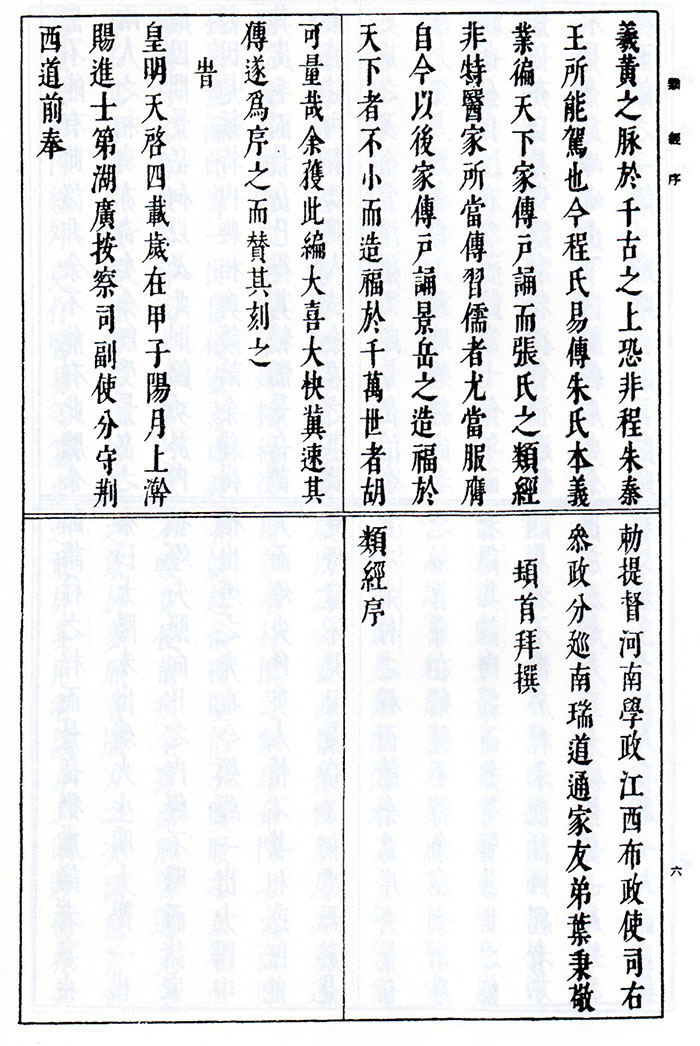 類經序
羲黃之脉於千古之上恐非程朱泰
王所能駕也今程氏易傳朱氏本義
業徧天下家傳戸誦而張氏之類經
非特醫家所當傳習儒者尤當服膺
自今以後家傳戸誦景岳之造福於
天下者不小而造福於千萬世者胡
可量哉余獲此編大喜大快冀速其
傳遂爲序之而賛其刻之
旹
皇明天啓四載歲在甲子陽月上澣
賜進士第湖廣按察司副使分守荆
西道前奉
勅提督河南學政江西布政使司右
叅政分廵南瑞道通家友弟葉秉敬
頓首拜撰
類經序
六